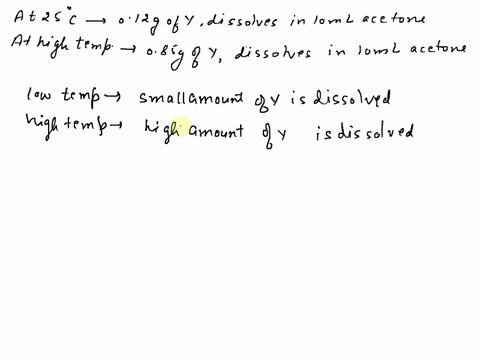 At 25°C → 0.12g of Y, dissolves in 10mL acetone
At high temp → 0.85g of Y, dissolves in 10mL acetone
low temp → small amount of Y is dissolved
high temp → high amount of Y is dissolved